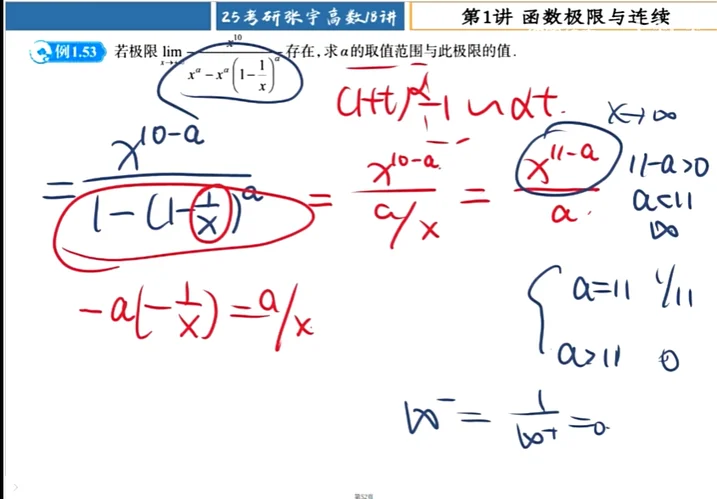 25考研张宇高数18讲
第1讲 函数极限与连续
例1.53 若极限 lim x→ x^10 / (x^α − x^α(1 − 1/x)^α) 存在,求α的取值范围与此极限的值.
(1+t)^α − 1 ∼ αt.
x→∞
= x^(10−a) / (1 − (1 − 1/x)^a) = x^(10−a) / (a/x) = x^(11−a) / a.
11−a>0
a<11
∞
−a(−1/x) = a/x
a=11 1/11
a>11 0
∞^− = 1/∞^+ = 0
第52页